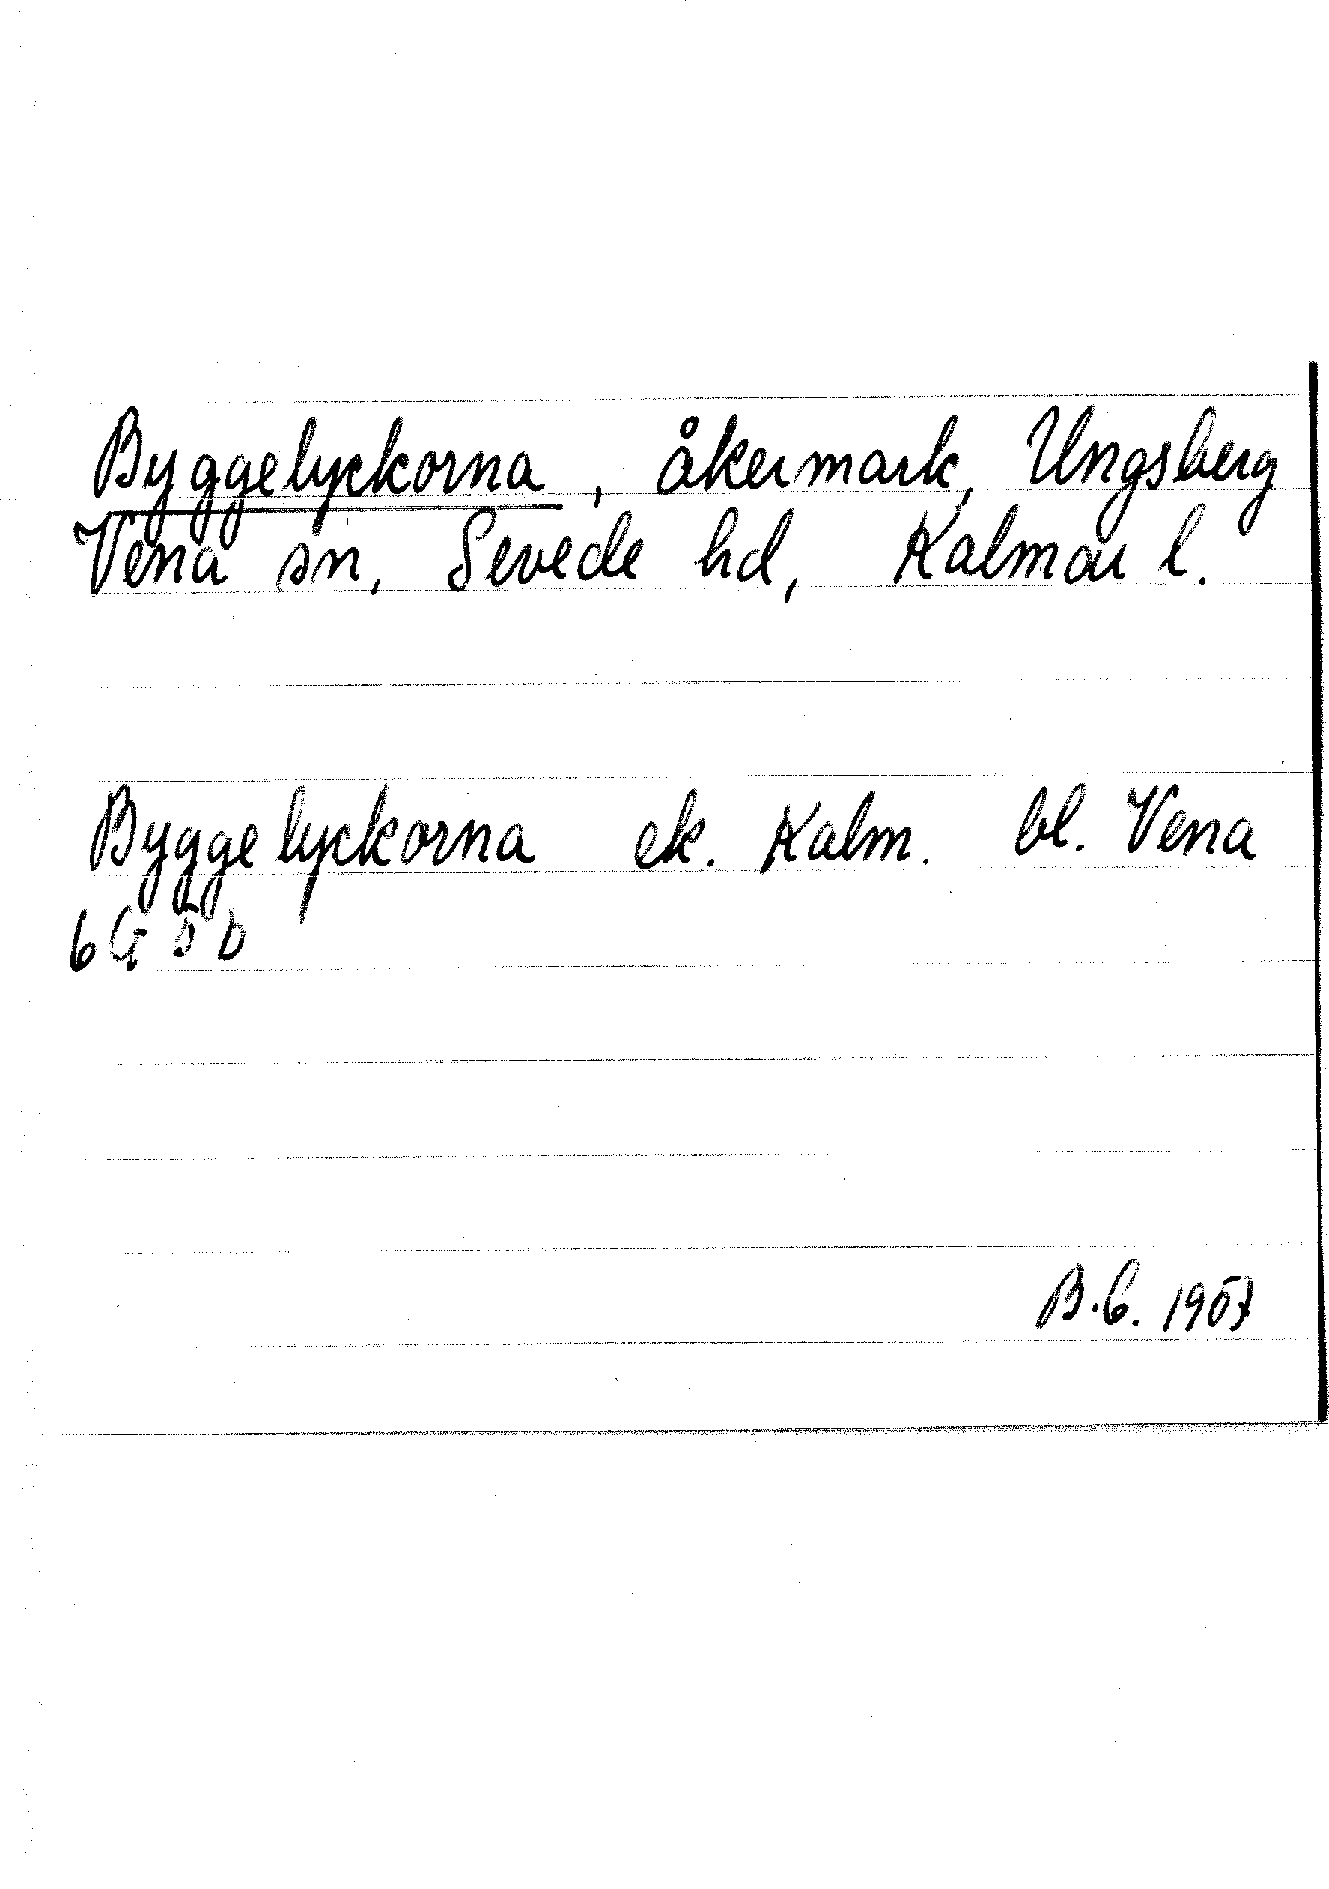 Byggelyckorna, åkermark, Ungsberg
Vena sn, Sevede hd, Kalmar l.
Byggelyckorna ek. Kalm. bl. Vena
6 G 5 b
B.C. 1957